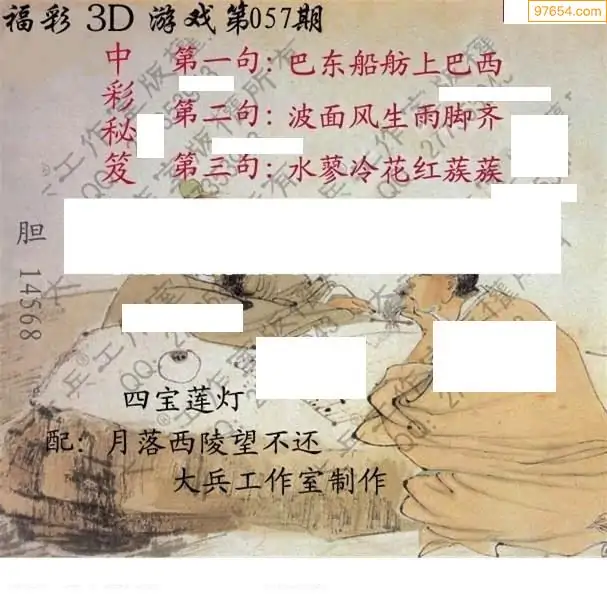 97654.com
福彩 3D 游戏第057期
中彩秘笈
第一句: 巴东船舫上巴西
第二句: 波面风生雨脚齐
第三句: 水蓼冷花红蔟蔟
胆 14568
四宝莲灯
配: 月落西陵望不还
大兵工作室制作